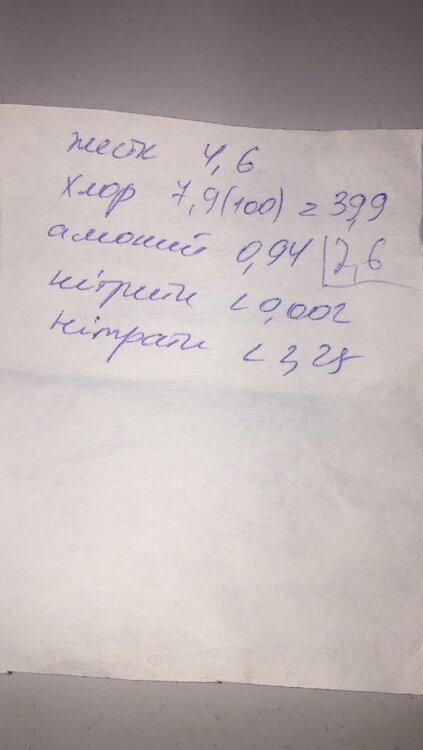 жестк 4,6
хлор 7,9(100) = 39,9
амоній 0,94 7,6
нітрити < 0,002
нітрати < 2,25